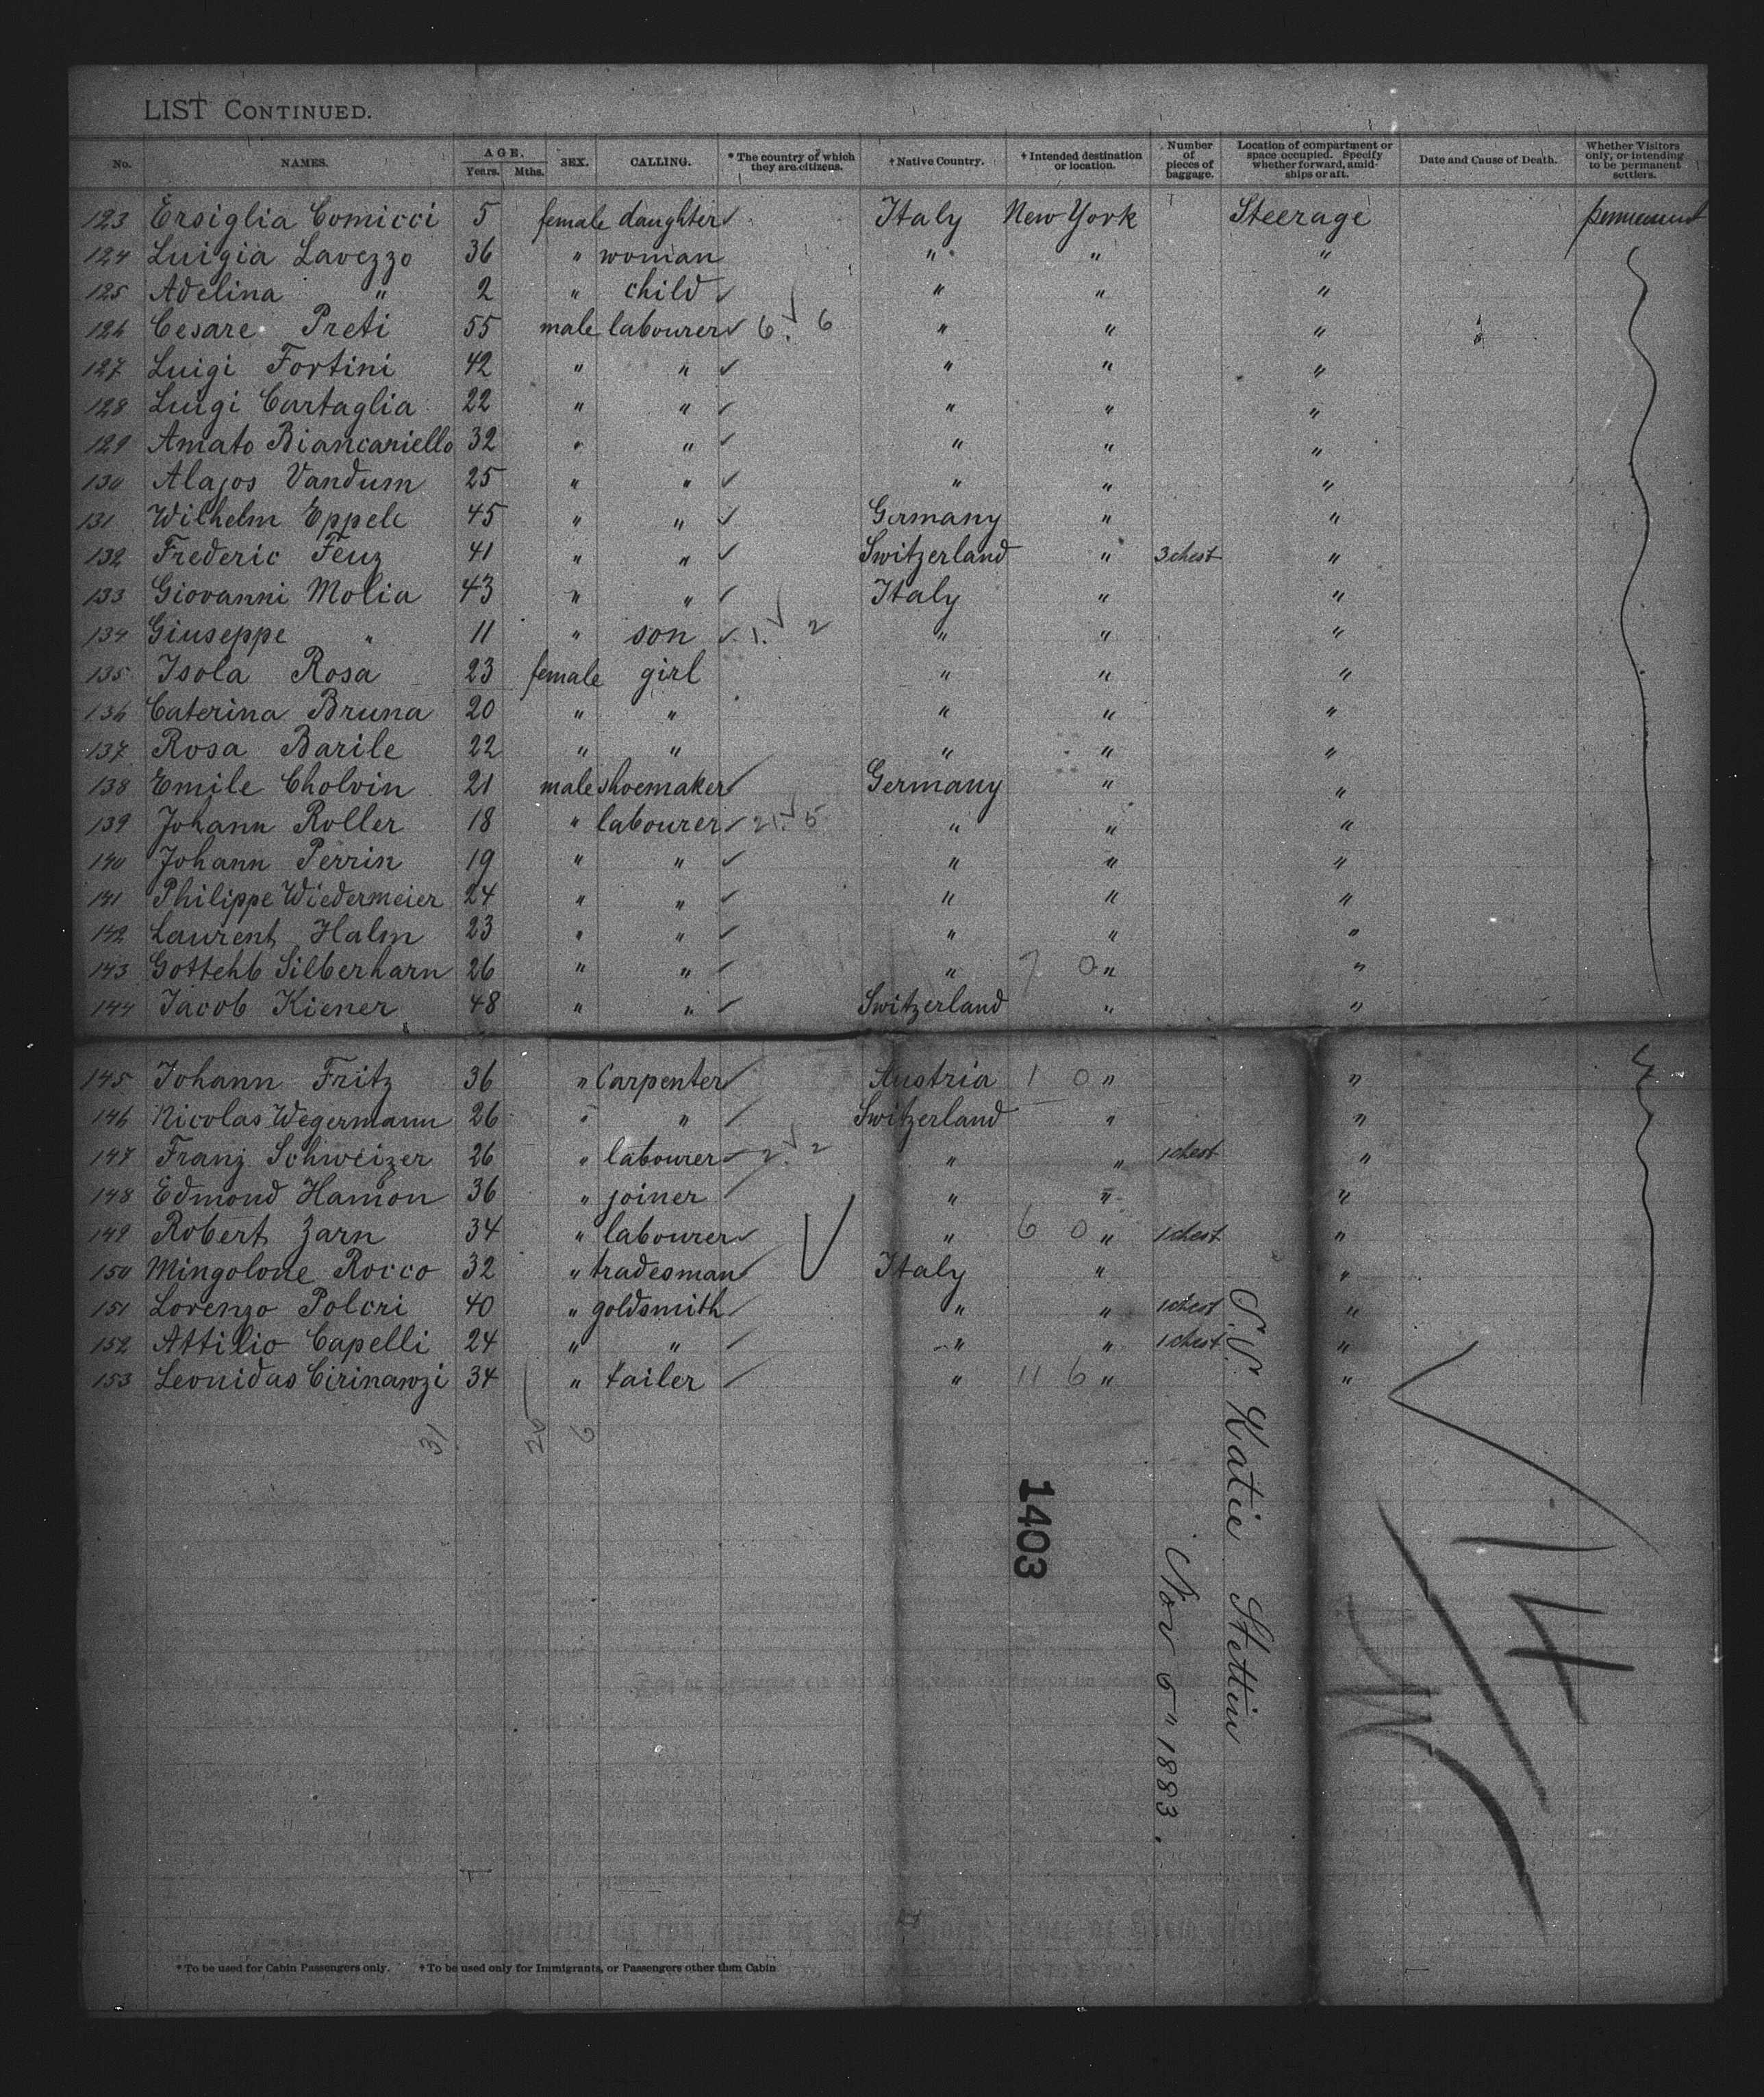 LIST CONTINUED.
No. NAMES. AGE. Years. Mths. SEX. CALLING. * The country of which they are citizens. † Native Country. † Intended destination or location. Number of pieces of baggage. Location of compartment or space occupied. Specify whether forward, amidships or aft. Date and Cause of Death. Whether Visitors only, or intending to be permanent settlers.
123 Ersiglia Comicci 5 female daughter Italy New York Steerage permanent
124 Luigia Lavezzo 36 " woman " " "
125 Adelina " 2 " child " " "
126 Cesare Preti 55 male labourer 6. 6 " " "
127 Luigi Fortini 42 " " " " "
128 Luigi Cartaglia 22 " " " " "
129 Amato Biancariello 32 " " " " "
130 Alajos Vandum 25 " " " " "
131 Wilhelm Eppele 45 " " Germany " "
132 Frederic Feuz 41 " " Switzerland " 3 chest "
133 Giovanni Molia 43 " " Italy " "
134 Giuseppe " 11 " son 1. 2 " " "
135 Isola Rosa 23 female girl " " "
136 Caterina Bruna 20 " " " " "
137 Rosa Barile 22 " " " " "
138 Emile Cholvin 21 male shoemaker Germany " "
139 Johann Roller 18 " labourer 21. 5 " " "
140 Johann Perrin 19 " " " " "
141 Philippe Wiedermeier 24 " " " " "
142 Laurent Halm 23 " " " " "
143 Gottehb Silberharn 26 " " " 7 0 " "
144 Jacob Kiener 48 " " Switzerland " "
145 Johann Fritz 36 " Carpenter Austria 1 0 " "
146 Nicolas Wegermann 26 " " Switzerland " "
147 Franz Schweizer 26 " labourer 2. 2 " " 1 chest "
148 Edmond Hamon 36 " joiner " " "
149 Robert Zarn 34 " labourer " 6 0 " 1 chest "
150 Mingolone Rocco 32 " tradesman Italy " "
151 Lorenzo Polcri 40 " goldsmith " " 1 chest "
152 Attilio Capelli 24 " " " " 1 chest "
153 Leonidas 34 " tailer " 11 6 " "
31 26 6
1403
S.S. Katie Stettin
Nov 5" 1883.
14
* To be used for Cabin Passengers only. † To be used only for Immigrants, or Passengers other than Cabin